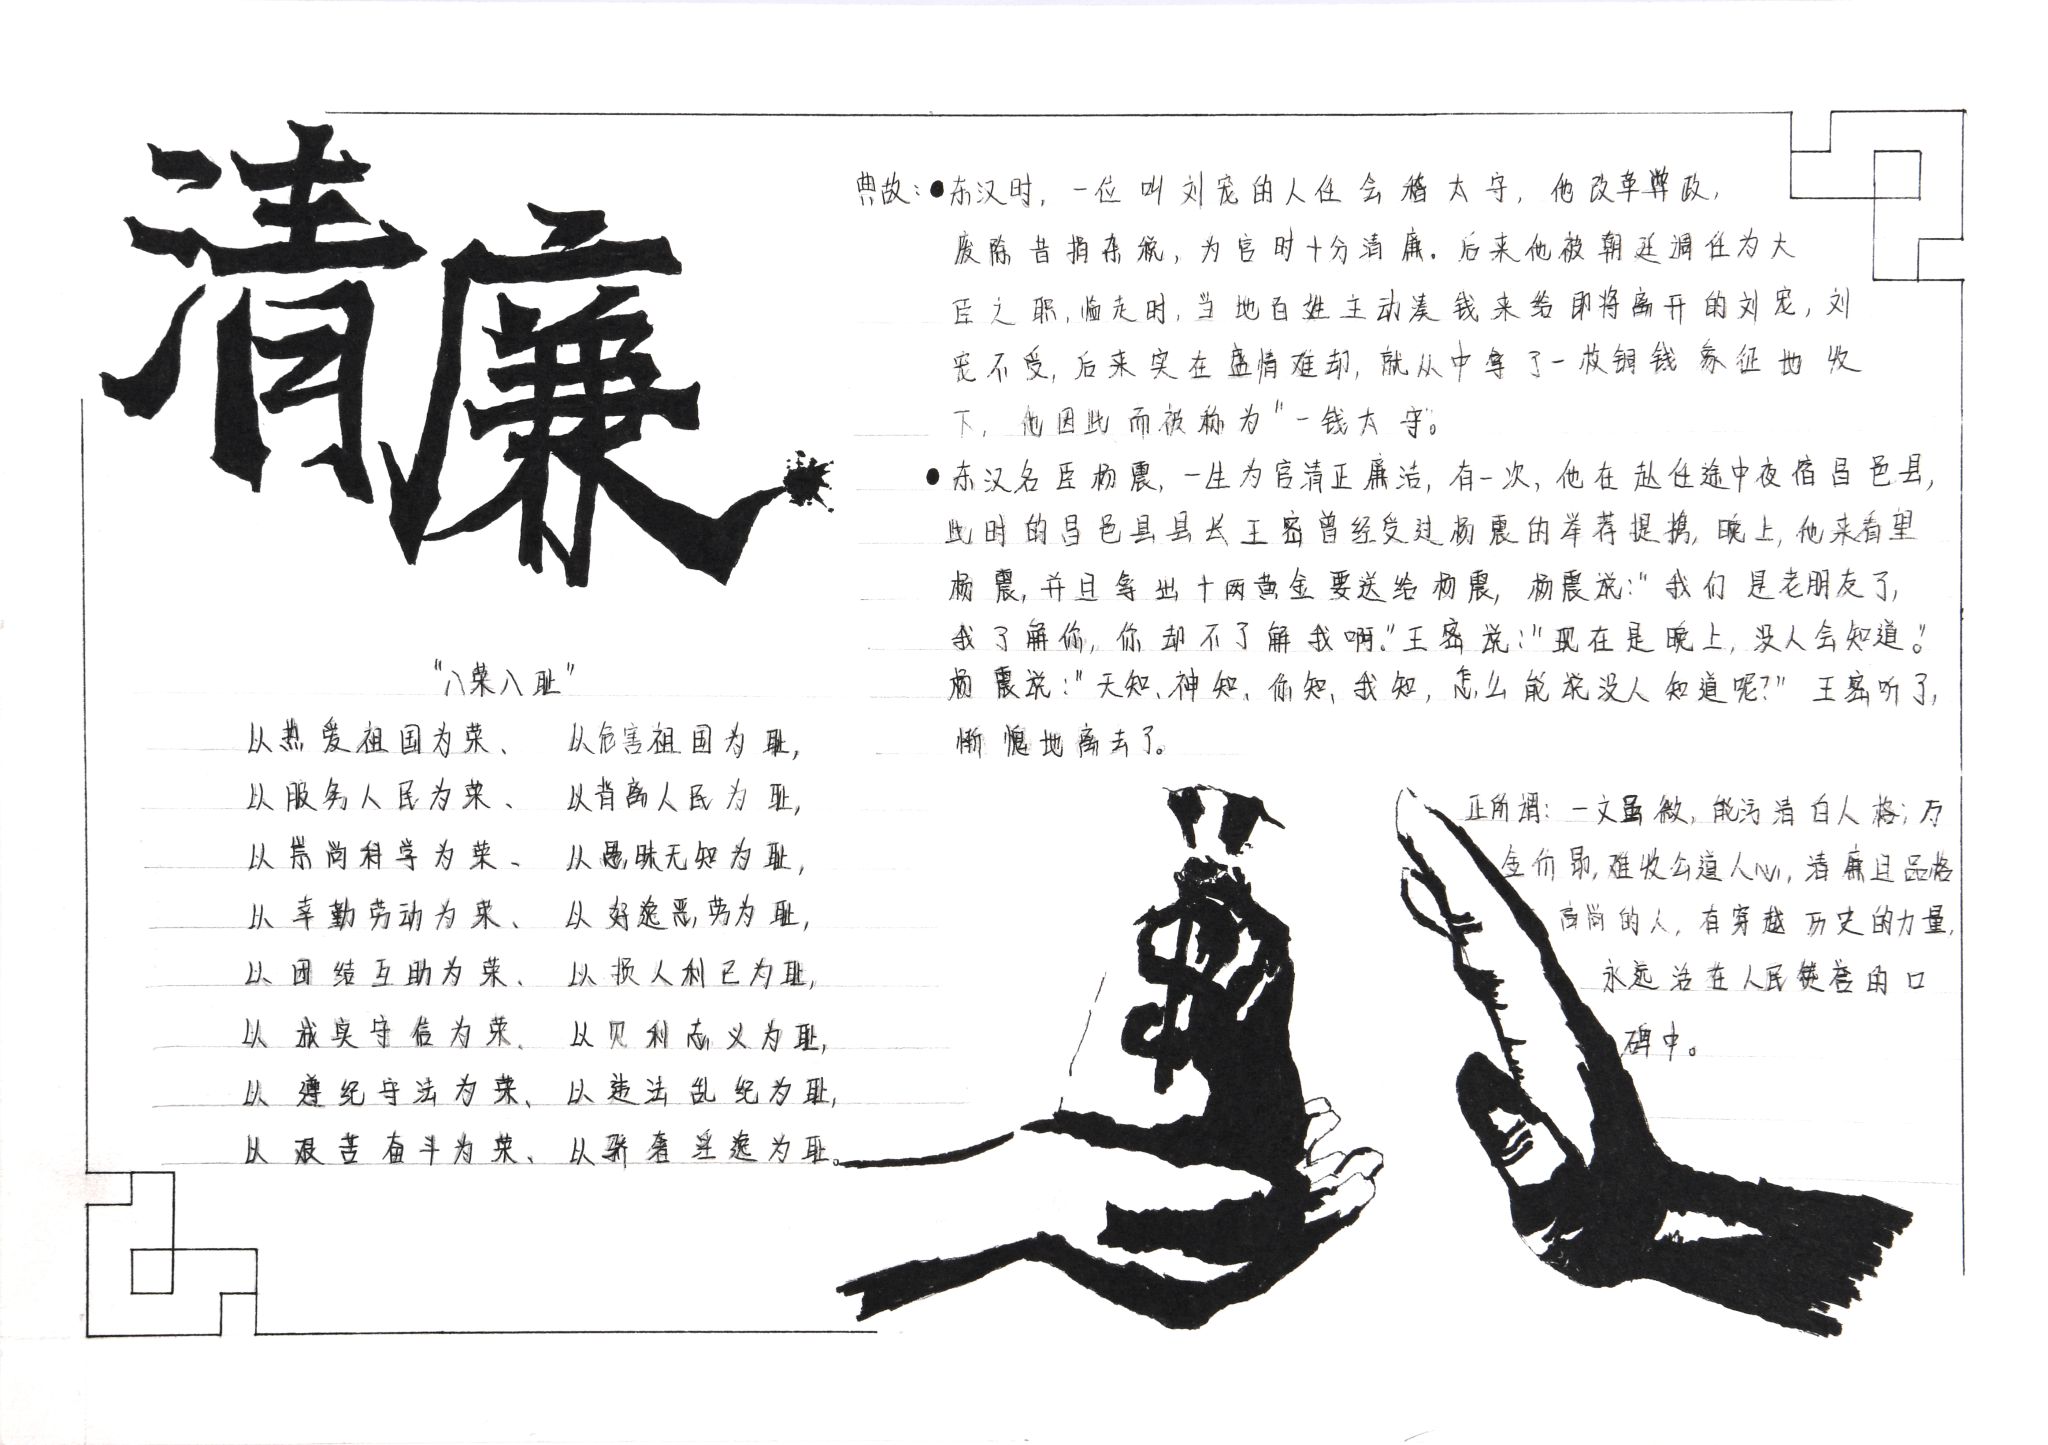 清廉
典故:●东汉时,一位叫刘宠的人任会稽太守,他改革弊政,
废除苛捐杂税,为官时十分清廉。后来他被朝廷调任为大
臣之职,临走时,当地百姓主动凑钱来给即将离开的刘宠,刘
宠不受,后来实在盛情难却,就从中拿了一枚铜钱象征地收
下,他因此而被称为"一钱太守"。
●东汉名臣杨震,一生为官清正廉洁,有一次,他在赴任途中夜宿昌邑县,
此时的昌邑县县长王密曾经受过杨震的举荐提携,晚上,他来看望
杨震,并且拿出十两黄金要送给杨震,杨震说:"我们是老朋友了,
我了解你,你却不了解我啊。"王密说:"现在是晚上,没人会知道。"
杨震说:"天知、神知、你知、我知,怎么能说没人知道呢?"王密听了,
惭愧地离去了。
"八荣八耻"
以热爱祖国为荣、以危害祖国为耻,
以服务人民为荣、以背离人民为耻,
以崇尚科学为荣、以愚昧无知为耻,
以辛勤劳动为荣、以好逸恶劳为耻,
以团结互助为荣、以损人利已为耻,
以诚实守信为荣、以见利忘义为耻,
以遵纪守法为荣、以违法乱纪为耻,
以艰苦奋斗为荣、以骄奢淫逸为耻。
正所谓:一文虽微,能污清白人格;万
金价昂,难收公道人心,清廉且品格
高尚的人,有穿越历史的力量,
永远活在人民赞誉的口
碑中。